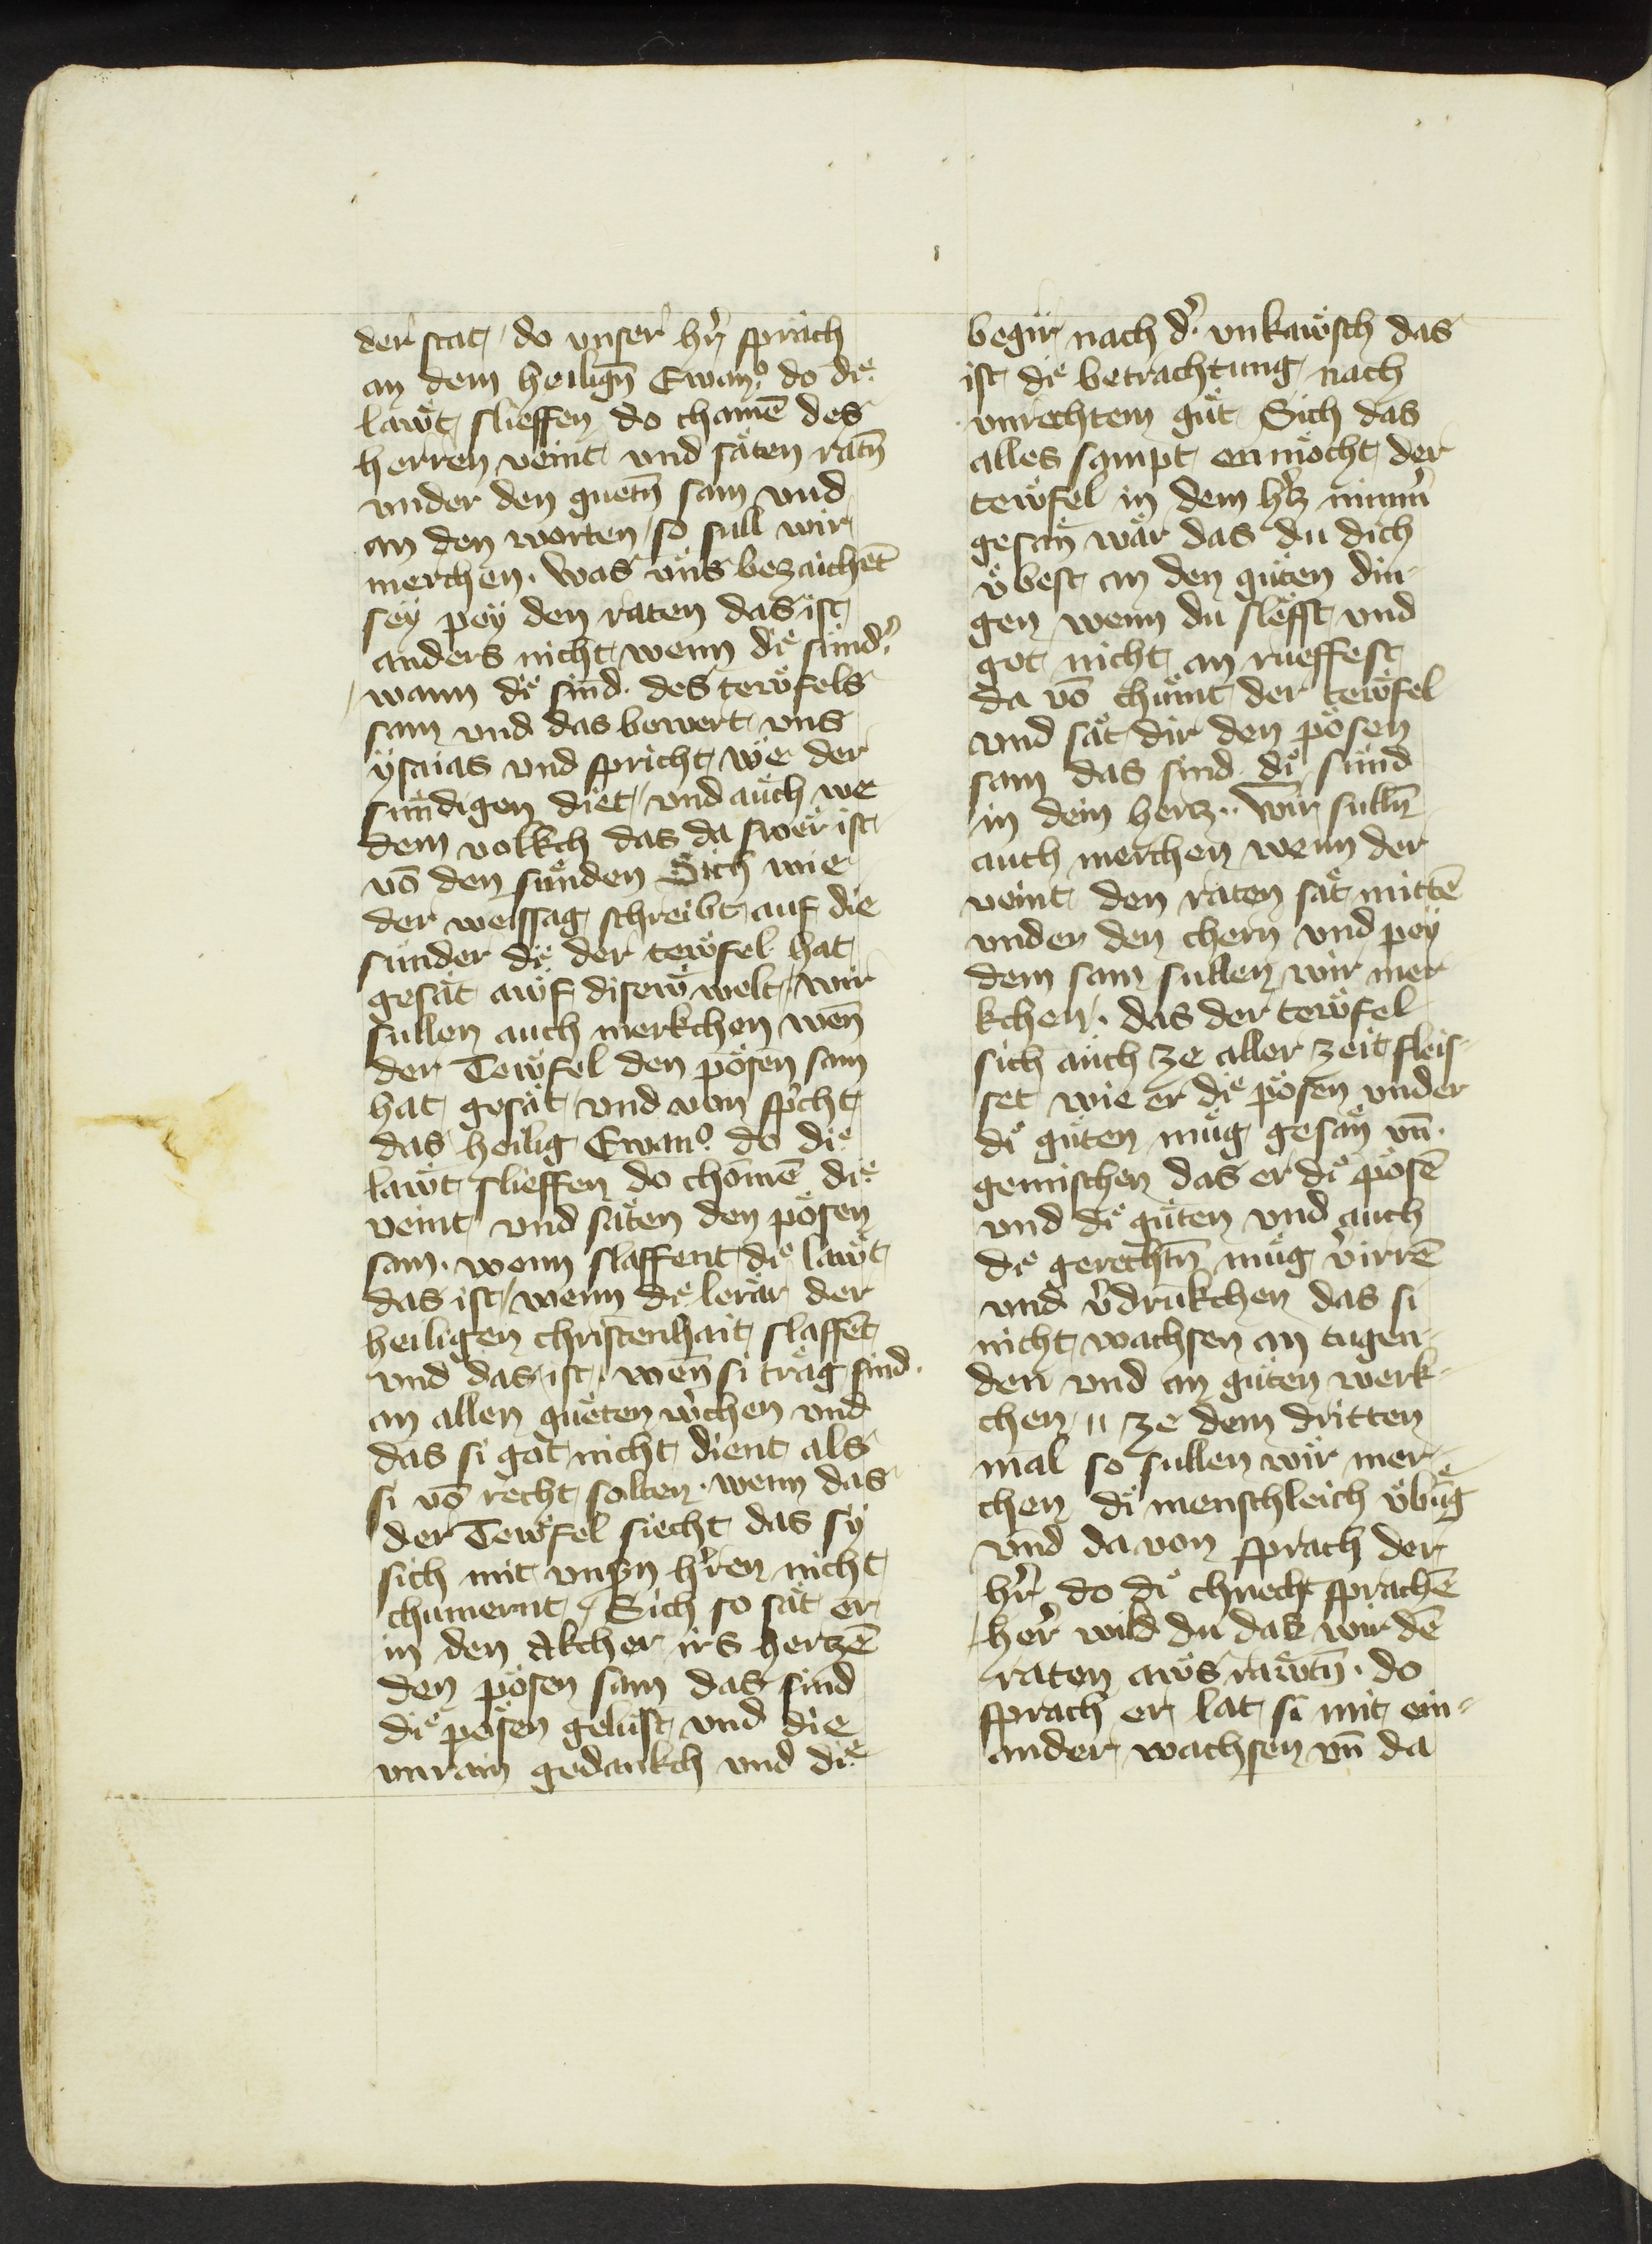 der stat do vnser hr̄ sprach
an dem heiligñ Ewanᵒ do dıͤ
lawͤt slieffen do chamē des
herren veint vnd saͤten ratñ
vnder den guetñ sam vnd
an den worten so sull wir
merchen. was vns bezaichēt
sey pey den raten das ist
anders nicht wenn dıͤ sund̾
wann dıͤ sind des tewͤfels
sam vnd das bewert vns
ysaias vnd spricht we der
sundigen diet vnd auch we
dem volkch das da swer ist
võ den sunden Sich wie
der weissag schreibt auf die
sunder dıͤ der tewͤfel hat
gesaͤt awf disew welt wir
sullen auch merkchen wen̄
der Tewͤfel den poͤsen sam
hat gesaͤt vnd von spͥcht
das heilig Ewanᵒ do dıͤ
lawͤt slieffen do chomē dıͤ
veint vnd saͤten den poͤsen
sam. wenn slaffent dıͤ lawͤt
das ist wenn dıͤ leraͤr der
heiligen christenhait slaffēt
vnd das ist wen̄ si traͤg sind.
an allen gueten w̾chen vnd
das si got nicht dient als
si võ recht solten. wenn das
der Tewͤfel siecht das sy
sich mit vns̾n h̾ren nicht
chumernt Sich so saͤt er
in den Akcher irs hertzē
den poͤsen sam das sind
dıͤ poͤsen gelust vnd die
vnrain gedankch vnd dıͤ
begir nach d̾ vnkawͤsch das
ist dıͤ betrachtung nach
vnrechtem gut Sich das
alles sampt enmoͤcht der
tewͤfel in dem h̾tz nim̄er
gesan̄ waͤr das du dich
vͤbest an den guten din-
gen wenn du slefft vnd
got nicht an rueffest
da võ chumt der tewͤfel
vnd saͤt dir den poͤsen
sam das sind dıͤ sund
in dein hertz. Wir sullñ
auch merchen wenn der
veint den raten saͤt mittē
vnder den chern vnd pey
dem sam sullen wir mer
kchen. das der tewͤfel
sich auch ze aller zeit fleis-
set wie er dıͤ poͤsen vnder
dıͤ guten mug gesan̄ vn̄.
gemischen das er dıͤ poͤsē
vnd dıͤ guten vnd auch
dıͤ gerechtñ mug v̾irrē
vnd v̾drukchen das si
nicht wachsen an tugen-
den vnd an guten werk-
chen ze dem dritten
mal so sullen wir mer-
chen dıͤ menschleich vͤbūg
vnd da von sprach der
hr̄ do dıͤ chnecht sprachē
her wild du das wir dē
raten aws rawtñ. do
sprach er lat si mit ein-
ander wachsen vn̄ da